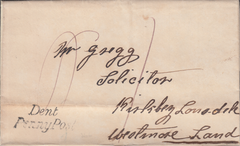 Mr Gregg
Solicitor
Kirkby Lonsdale
Westmore Land
Dent
Penny Po